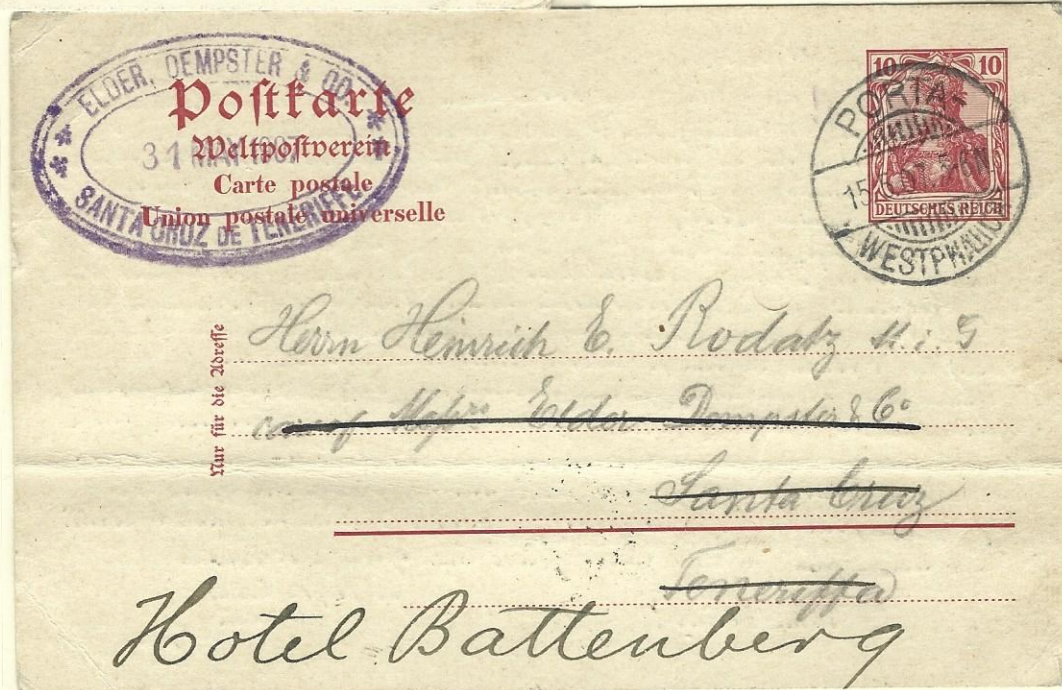 ELDER, DEMPSTER & CO.
31 MAY 1907
SANTA CRUZ DE TENERIFFE
Postkarte
Weltpostverein
Carte postale
Union postale universelle
10 10
DEUTSCHES REICH
PORTA-
WESTPHALICA
Nur für die Adresse
Herrn Heinrich E. Rodatz
Messrs Elder Dempster & Co
Santa Cruz
Teneriffa
Hotel Battenberg